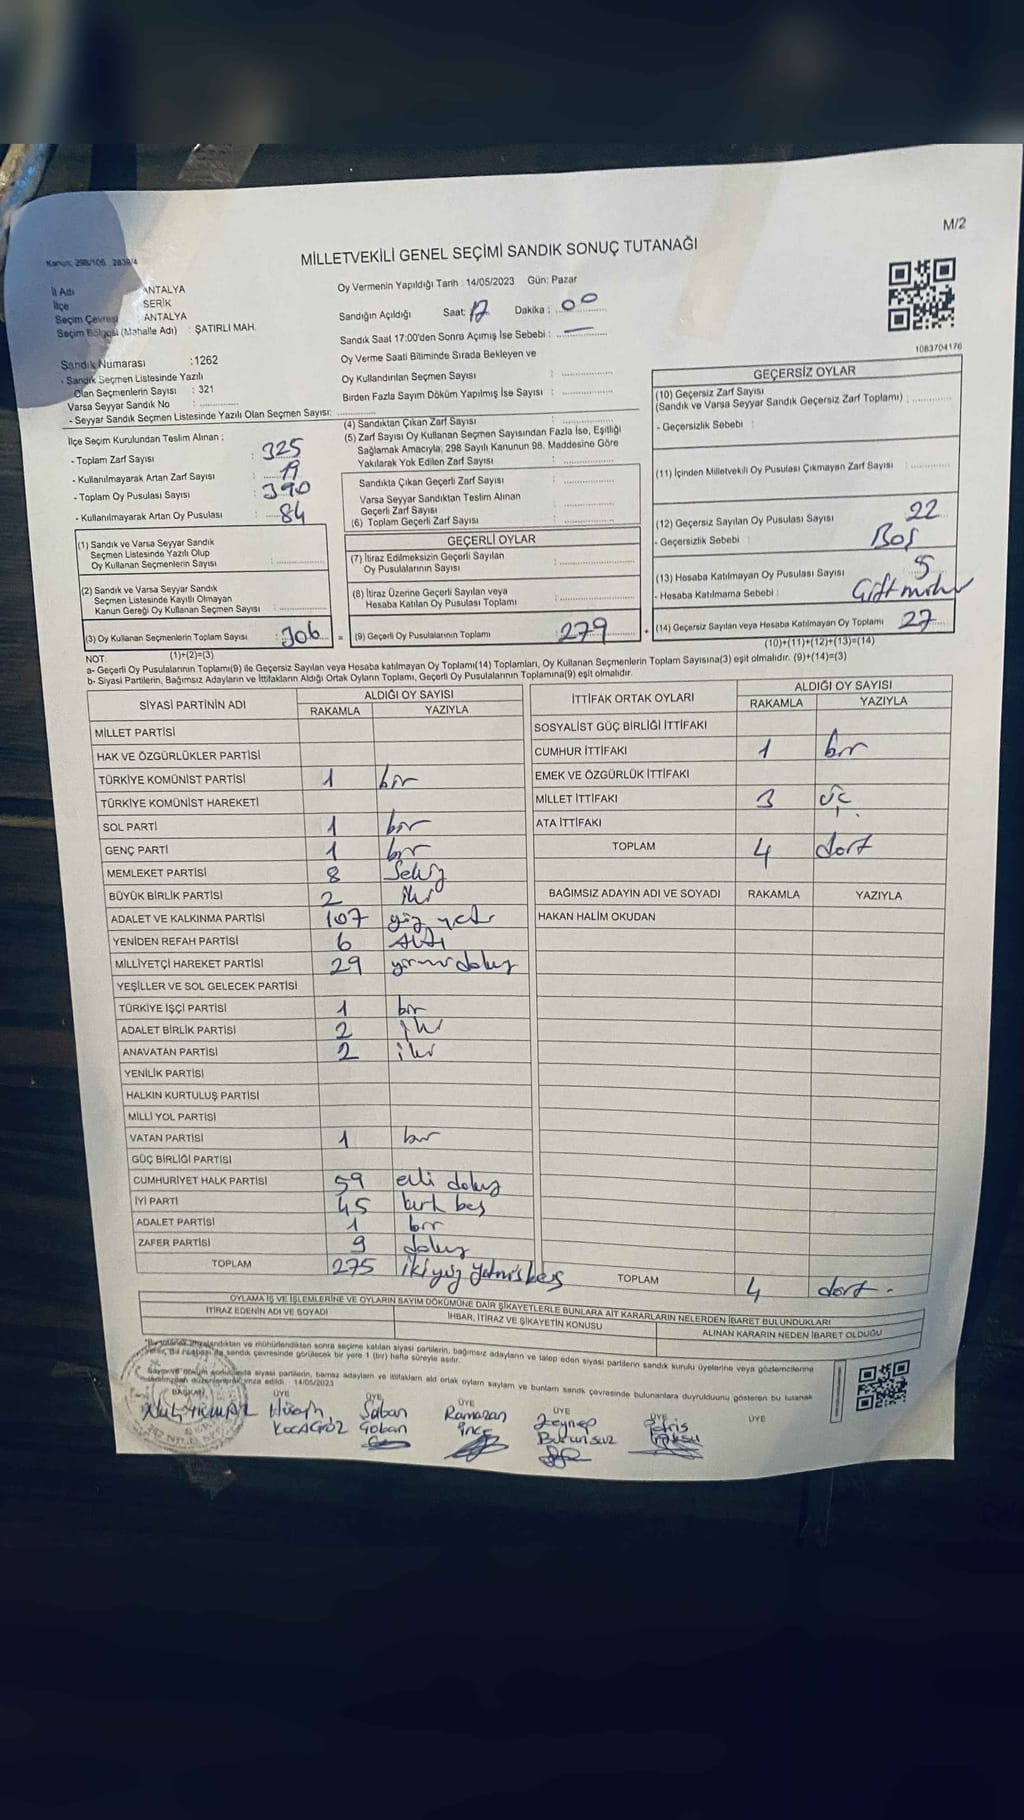 M/2
MİLLETVEKİLİ GENEL SEÇİMİ SANDIK SONUÇ TUTANAĞI
Kanun: 298/105 2839/4
İl Adı ANTALYA
İlçe SERİK
Seçim Çevresi : ANTALYA
Seçim Bölgesi (Mahalle Adı) : ŞATIRLI MAH.
Oy Vermenin Yapıldığı Tarih : 14/05/2023 Gün: Pazar
Sandığın Açıldığı Saat: 17 Dakika : 00
Sandık Saat 17:00'den Sonra Açımış İse Sebebi : —
Oy Verme Saati Bitiminde Sırada Bekleyen ve
Oy Kullandırılan Seçmen Sayısı :
Birden Fazla Sayım Döküm Yapılmış İse Sayısı :
1083704176
Sandık Numarası : 1262
- Sandık Seçmen Listesinde Yazılı
Olan Seçmenlerin Sayısı : 321
Varsa Seyyar Sandık No :
- Seyyar Sandık Seçmen Listesinde Yazılı Olan Seçmen Sayısı:
İlçe Seçim Kurulundan Teslim Alınan ;
- Toplam Zarf Sayısı : 325
- Kullanılmayarak Artan Zarf Sayısı : 19
- Toplam Oy Pusulası Sayısı : 390
- Kullanılmayarak Artan Oy Pusulası : 84
(1) Sandık ve Varsa Seyyar Sandık
Seçmen Listesinde Yazılı Olup
Oy Kullanan Seçmenlerin Sayısı :
(2) Sandık ve Varsa Seyyar Sandık
Seçmen Listesinde Kayıtlı Olmayan
Kanun Gereği Oy Kullanan Seçmen Sayısı :
(3) Oy Kullanan Seçmenlerin Toplam Sayısı : 306
(1)+(2)=(3)
(4) Sandıktan Çıkan Zarf Sayısı :
(5) Zarf Sayısı Oy Kullanan Seçmen Sayısından Fazla İse, Eşitliği
Sağlamak Amacıyla; 298 Sayılı Kanunun 98. Maddesine Göre
Yakılarak Yok Edilen Zarf Sayısı :
Sandıkta Çıkan Geçerli Zarf Sayısı :
Varsa Seyyar Sandıktan Teslim Alınan
Geçerli Zarf Sayısı :
(6) Toplam Geçerli Zarf Sayısı :
GEÇERLİ OYLAR
(7) İtiraz Edilmeksizin Geçerli Sayılan
Oy Pusulalarının Sayısı :
(8) İtiraz Üzerine Geçerli Sayılan veya
Hesaba Katılan Oy Pusulası Toplamı :
= (9) Geçerli Oy Pusulalarının Toplamı : 279 +
GEÇERSİZ OYLAR
(10) Geçersiz Zarf Sayısı
(Sandık ve Varsa Seyyar Sandık Geçersiz Zarf Toplamı) :
- Geçersizlik Sebebi :
(11) İçinden Milletvekili Oy Pusulası Çıkmayan Zarf Sayısı :
(12) Geçersiz Sayılan Oy Pusulası Sayısı : 22
- Geçersizlik Sebebi : Boş
(13) Hesaba Katılmayan Oy Pusulası Sayısı : 5
- Hesaba Katılmama Sebebi : Çift mühür
(14) Geçersiz Sayılan veya Hesaba Katılmayan Oy Toplamı : 27
(10)+(11)+(12)+(13)=(14)
NOT:
a- Geçerli Oy Pusulalarının Toplamı(9) ile Geçersiz Sayılan veya Hesaba katılmayan Oy Toplamı(14) Toplamları, Oy Kullanan Seçmenlerin Toplam Sayısına(3) eşit olmalıdır. (9)+(14)=(3)
b- Siyasi Partilerin, Bağımsız Adayların ve İttifakların Aldığı Ortak Oyların Toplamı, Geçerli Oy Pusulalarının Toplamına(9) eşit olmalıdır.
SİYASİ PARTİNİN ADI ALDIĞI OY SAYISI
RAKAMLA YAZIYLA
MİLLET PARTİSİ
HAK VE ÖZGÜRLÜKLER PARTİSİ
TÜRKİYE KOMÜNİST PARTİSİ 1 bir
TÜRKİYE KOMÜNİST HAREKETİ
SOL PARTİ 1 bir
GENÇ PARTİ 1 bir
MEMLEKET PARTİSİ 8 Sekiz
BÜYÜK BİRLİK PARTİSİ 2 iki
ADALET VE KALKINMA PARTİSİ 107 yüz yedi
YENİDEN REFAH PARTİSİ 6 Altı
MİLLİYETÇİ HAREKET PARTİSİ 29 yirmi dokuz
YEŞİLLER VE SOL GELECEK PARTİSİ
TÜRKİYE İŞÇİ PARTİSİ 1 bir
ADALET BİRLİK PARTİSİ 2 iki
ANAVATAN PARTİSİ 2 iki
YENİLİK PARTİSİ
HALKIN KURTULUŞ PARTİSİ
MİLLİ YOL PARTİSİ
VATAN PARTİSİ 1 bir
GÜÇ BİRLİĞİ PARTİSİ
CUMHURİYET HALK PARTİSİ 59 elli dokuz
İYİ PARTİ 45 kırk beş
ADALET PARTİSİ 1 bir
ZAFER PARTİSİ 9 dokuz
TOPLAM 275 ikiyüz yetmişbeş
İTTİFAK ORTAK OYLARI ALDIĞI OY SAYISI
RAKAMLA YAZIYLA
SOSYALİST GÜÇ BİRLİĞİ İTTİFAKI
CUMHUR İTTİFAKI 1 bir
EMEK VE ÖZGÜRLÜK İTTİFAKI
MİLLET İTTİFAKI 3 üç
ATA İTTİFAKI
TOPLAM 4 dört
BAĞIMSIZ ADAYIN ADI VE SOYADI RAKAMLA YAZIYLA
HAKAN HALİM OKUDAN
TOPLAM 4 dört.
OYLAMA İŞ VE İŞLEMLERİNE VE OYLARIN SAYIM DÖKÜMÜNE DAİR ŞİKAYETLERLE BUNLARA AİT KARARLARIN NELERDEN İBARET BULUNDUKLARI
İTİRAZ EDENİN ADI VE SOYADI İHBAR, İTİRAZ VE ŞİKAYETİN KONUSU ALINAN KARARIN NEDEN İBARET OLDUĞU
mühürlendikten sonra seçime katılan siyasi partilerin, bağımsız adayların ve talep eden siyasi partilerin sandık kurulu üyelerine veya gözlemcilerine
sandık çevresinde görülecek bir yere 1 (bir) hafta süreyle asılır.
siyasi partilerin, adayların ve ittifakların ortak oyların ve bunların sandık çevresinde bulunanlara duyrulduunu gösteren bu tutanak
14/05/2023
BAŞKAN ÜYE ÜYE ÜYE ÜYE ÜYE ÜYE
Hüseyin KOCAGÖZ
Şaban Çoban
Ramazan ince
Zeynep
İdris